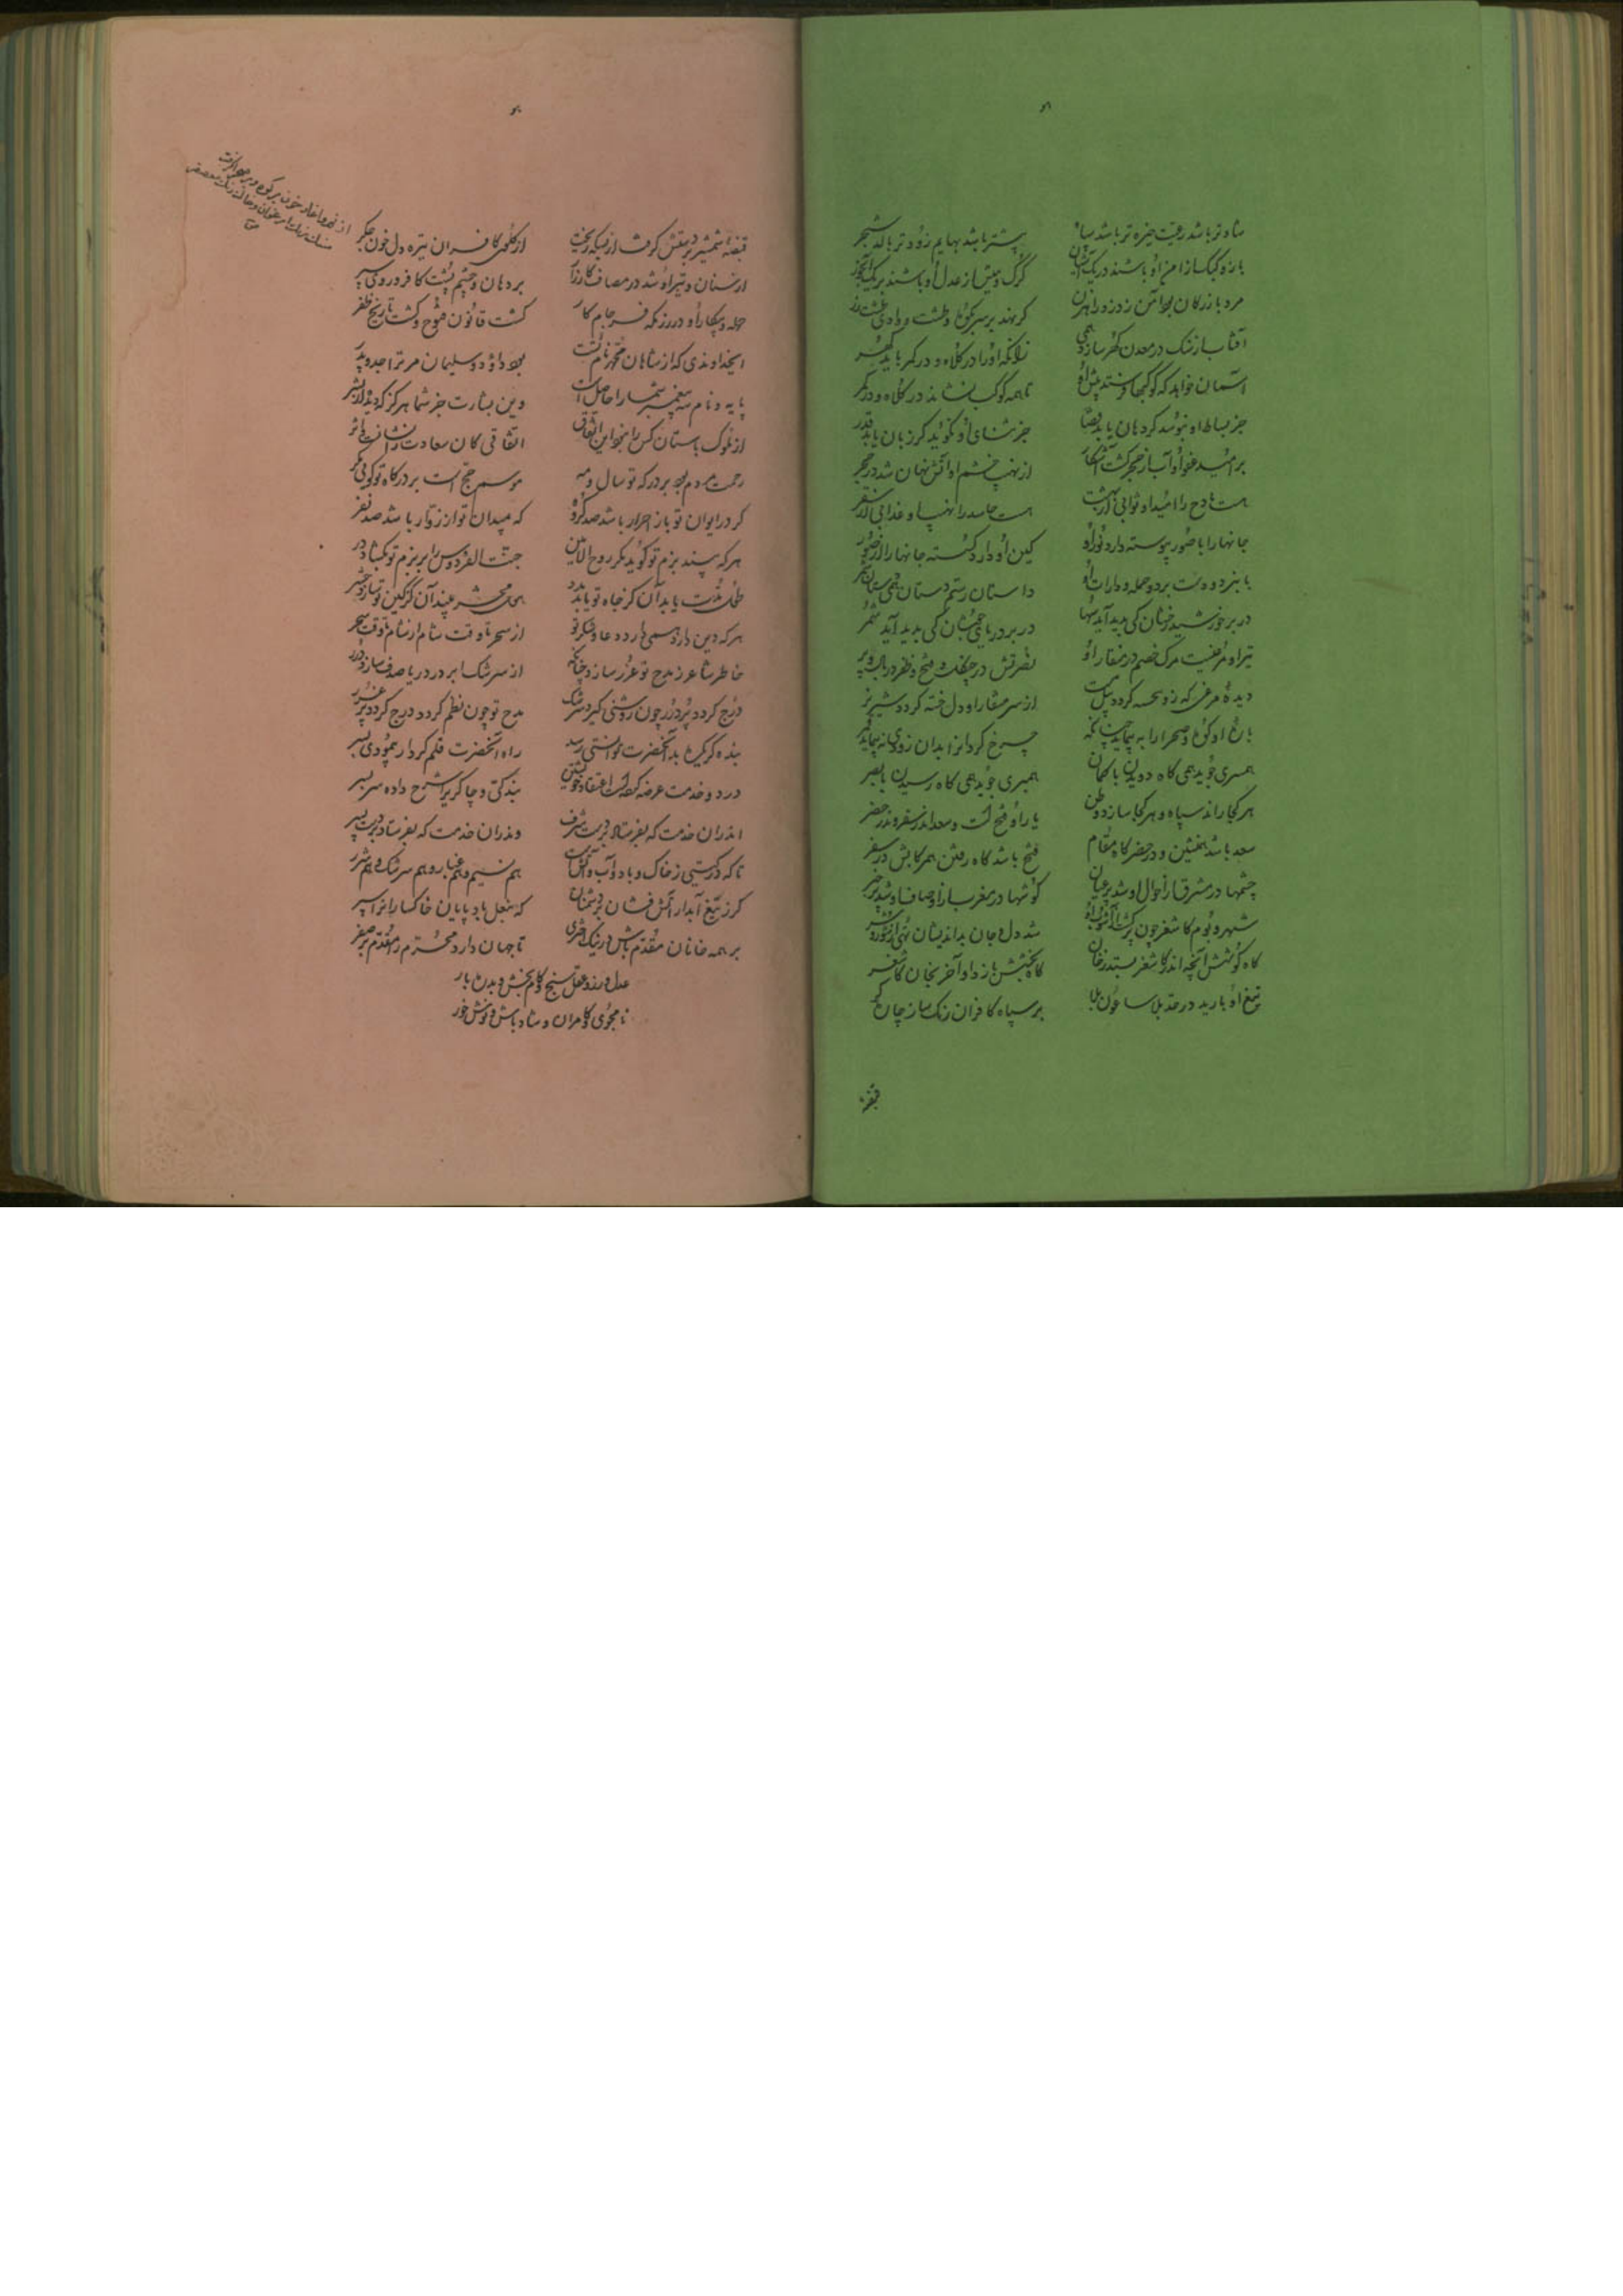 شاه تر باشد رعیت چیره تر باشد سپاه
پیشتر باشد بهایم زودتر بالد شجر
باز و کبک از امن او باشند در یک آشیان
گرگ و میش از عدل او باشند بر یک آبخور
مرد بازرگان بود ایمن ز دزد و راهزن
گر نهد بر سر بکوه و دشت و وادی طشت زر
آفتاب از سنگ در معدن گهر سازد همی
زانکه او را در کلاه و در کمر باید گهر
آسمان خواهد که کوکبها فرستد پیش او
تا همه کوکب نشاند در کلاه و در کمر
جز بساط او نبوسد گر دهان یابد قضا
جز ثنای او نگوید گر زبان یابد قدر
بر امید عفو او آب از حجر گشت آشکار
از نهیب خشم او آتش نهان شد در حجر
هست مادح را امید او ثوابی از بهشت
هست حاسد را نهیب او عذابی از سقر
جانها را با صور پیوسته دارد نور او
کین او دارد گسسته جانها را از صور
با نبرد و دست برد و حمله و دارات او
داستان رستم دستان همی شد مختصر
در بر خورشید رخشان کی پدید آید سها
در بر دریای جوشان کی پدید آید شمر
تیر او مرغیست مرگ خصم در منقار او
نصرتش در چنگل و فتح و ظفر در بال و پر
دیده مرغی که زو خسته گردد پیل مست
از سر منقار او دل خسته گردد شیر نر
با رغ او کوه و صحرا را به پیماید چنانکه
چرخ گردانرا بدان زودی نه پیماید قمر
همسری جوید همی گاه دویدن با گمان
همبری جوید همی گاه رسیدن با بصر
هر کجا راند سپاه و هر کجا سازد وطن
یار او فتح است و سعد اندر سفر و ندر حضر
سعد باشد همنشین و در حضر گاه مقام
فتح باشد گاه رفتن همرکابش در سفر
چشمها در مشرق از احوال او شد پر عیان
گوشها در مغرب از اوصاف او شد پر خبر
شهر و بوم کاشغر چون پر شد از آشوب او
شد دل و جان بداندیشان تهی از شور و شر
گاه کوشش آنچه اندر کاشغر بستد ز خان
گاه بخشش باز داد آخر بخان کاشغر
تیغ او بارید در حد بلاساغون بلا
بر سپاه کافران زنگ ساز چان گر
قبضه
قبضه شمشیر در دستش گرفت از بسکه ریخت
از گلوی کافران تیره دل خون جگر
از سنان و تیر او شد در مصاف کارزار
بر دهان و چشم و پشت کافر و روی سپر
حمله و پیکار او در رزمگه فرجام کار
گشت قانون فتوح و گشت تاریخ ظفر
ایخداوندی که از شاهان مفخر نام تست
بود داود و سلیمان مر ترا جد و پدر
پایه و نام سه پیغمبر شما را حاصل است
وین بشارت جز شما هرگز که دید از بشر
از ملوک باستان کس را نبود این اتفاق
اتفاقی کان سعادت را نشانست و اثر
زحمت مردم بود بر درگه تو سال و مه
موسم حج است بر درگاه تو گویی مگر
گر در ایوان تو باز احرار باشد صد گروه
که میدان تو از زوار باشد صد نفر
هر که بیند بزم تو گوید مگر روح الامین
جنت الفردوس را بر بزم تو بگشاد در
از سحر تا وقت شام از شام تا وقت سحر
هر که دین دارد همی دارد دعا و شکر تو
خاطر شاعر ز مدح تو غرر سازد چنانکه
از سرشک ابر در دریا صدف سازد درر
درج گردد پر درر چون روشنی گیرد سرشک
مدح تو چون نظم گردد درج گردد پر غرر
بنده گر یکره بدانحضرت توانستی رسید
راه آنحضرت قلم کردار پیمودی بسر
در دو خدمت عرضه کرده است اعتقاد خویشتن
بندگی و چاکری را شرح داده سر بسر
اندران خدمت که بفرستاد بدست شرف
وندران خدمت که بفرستاد بدست پسر
تا که در گیتی ز خاک و باد و آب و آتش است
هم نسیم و هم غبار و هم سرشک و هم شرر
گرز تیغ آبدار آتش فشان بر دشمنان
که بنعل باد پایان خاکسار آنرا سپر
بر همه خانان مقدم باش در نیک اختری
تا جهان دارد محرم را مقدم بر صفر
عدل ورز و عقل سنج و کام بخش و دین بار
نامجوی و کامران و شاد باش و نوش خور